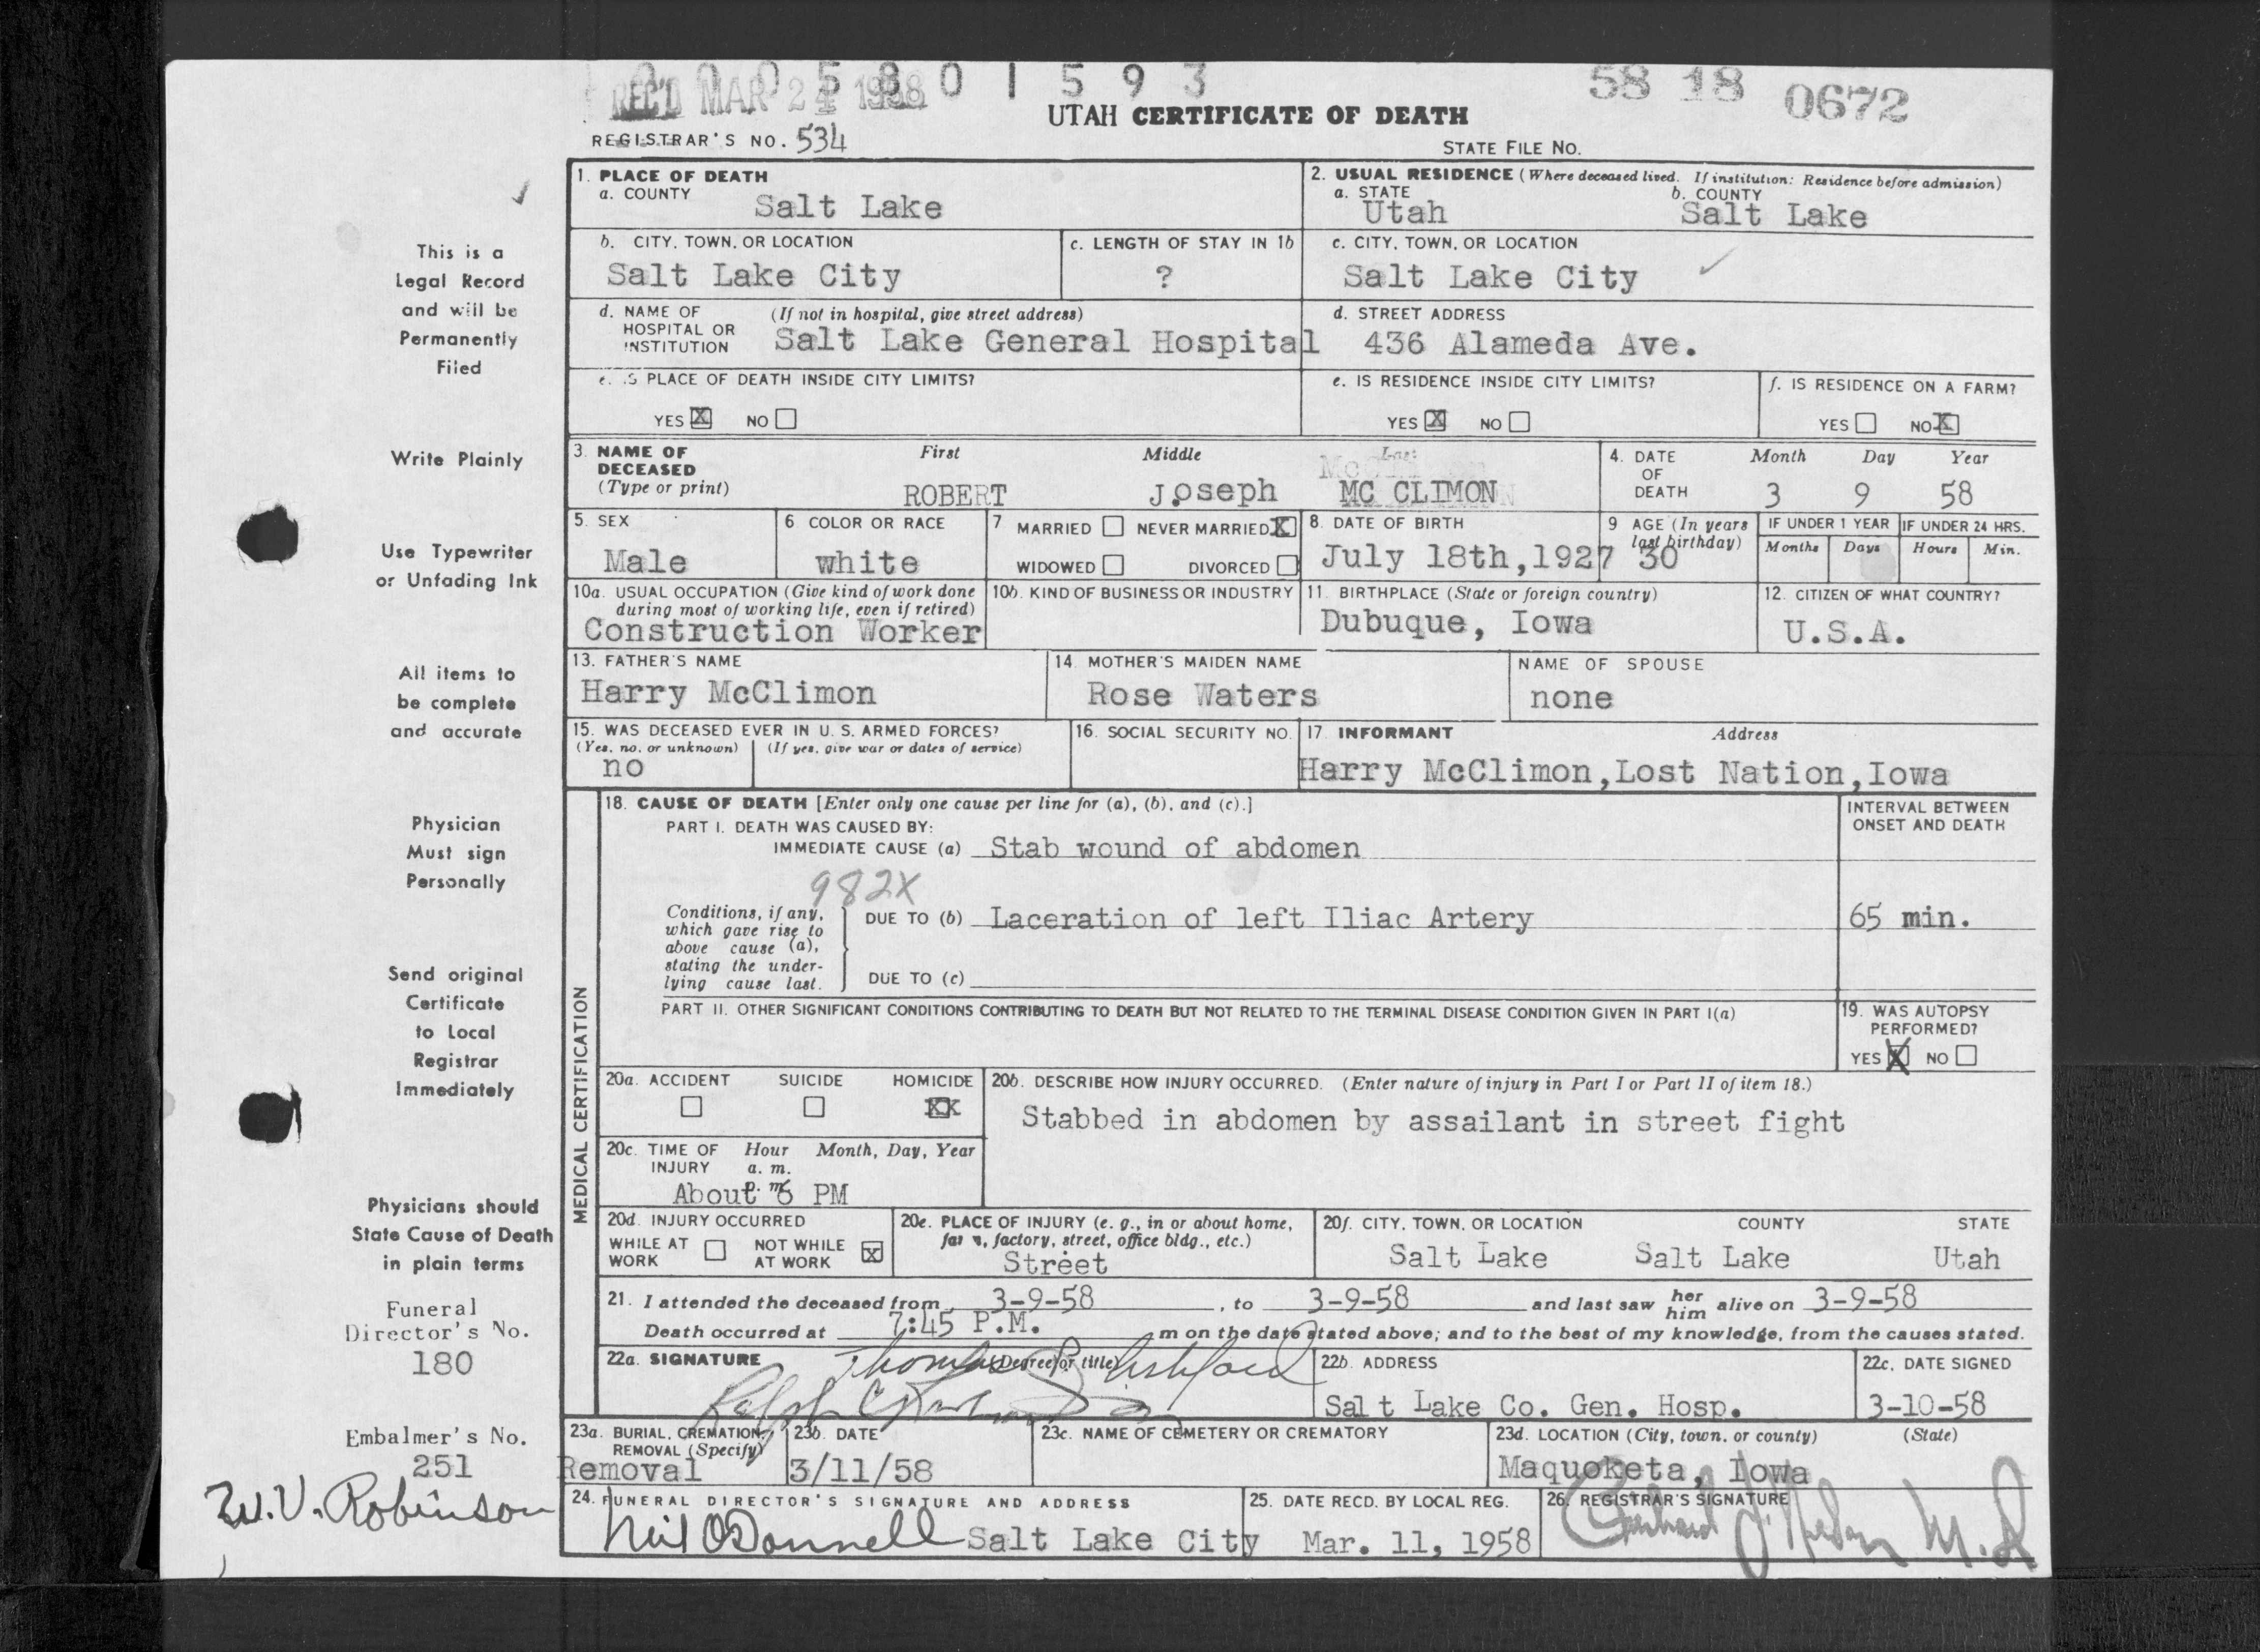 0005801593
REC'D MAR 24 1958
58 18 0672
UTAH CERTIFICATE OF DEATH
REGISTRAR'S NO. 534
STATE FILE NO.
1. PLACE OF DEATH
a. COUNTY Salt Lake
2. USUAL RESIDENCE (Where deceased lived. If institution: Residence before admission)
a. STATE Utah b. COUNTY Salt Lake
b. CITY, TOWN, OR LOCATION Salt Lake City
c. LENGTH OF STAY IN 1b ?
c. CITY, TOWN, OR LOCATION Salt Lake City
d. NAME OF HOSPITAL OR INSTITUTION (If not in hospital, give street address) Salt Lake General Hospital
d. STREET ADDRESS 436 Alameda Ave.
e. IS PLACE OF DEATH INSIDE CITY LIMITS? YES X NO
e. IS RESIDENCE INSIDE CITY LIMITS? YES X NO
f. IS RESIDENCE ON A FARM? YES NO X
3. NAME OF DECEASED (Type or print) First Middle Last
ROBERT Joseph MC CLIMON
4. DATE OF DEATH Month Day Year
3 9 58
5. SEX Male
6 COLOR OR RACE white
7 MARRIED NEVER MARRIED X
WIDOWED DIVORCED
8. DATE OF BIRTH July 18th,1927
9 AGE (In years last birthday) 30
IF UNDER 1 YEAR Months Days
IF UNDER 24 HRS. Hours Min.
10a. USUAL OCCUPATION (Give kind of work done during most of working life, even if retired)
Construction Worker
10b. KIND OF BUSINESS OR INDUSTRY
11. BIRTHPLACE (State or foreign country) Dubuque, Iowa
12. CITIZEN OF WHAT COUNTRY? U.S.A.
13. FATHER'S NAME Harry McClimon
14. MOTHER'S MAIDEN NAME Rose Waters
NAME OF SPOUSE none
15. WAS DECEASED EVER IN U. S. ARMED FORCES?
(Yes, no, or unknown) (If yes, give war or dates of service)
no
16. SOCIAL SECURITY NO.
17. INFORMANT Address
Harry McClimon,Lost Nation,Iowa
MEDICAL CERTIFICATION
18. CAUSE OF DEATH [Enter only one cause per line for (a), (b), and (c).]
INTERVAL BETWEEN ONSET AND DEATH
PART I. DEATH WAS CAUSED BY:
IMMEDIATE CAUSE (a) Stab wound of abdomen
982X
Conditions, if any, which gave rise to above cause (a), stating the underlying cause last.
DUE TO (b) Laceration of left Iliac Artery 65 min.
DUE TO (c)
PART II. OTHER SIGNIFICANT CONDITIONS CONTRIBUTING TO DEATH BUT NOT RELATED TO THE TERMINAL DISEASE CONDITION GIVEN IN PART I(a)
19. WAS AUTOPSY PERFORMED?
YES X NO
20a. ACCIDENT SUICIDE HOMICIDE
XX
20b. DESCRIBE HOW INJURY OCCURRED. (Enter nature of injury in Part I or Part II of item 18.)
Stabbed in abdomen by assailant in street fight
20c. TIME OF INJURY Hour Month, Day, Year
a. m.
p. m.
About 6 PM
20d. INJURY OCCURRED
WHILE AT WORK NOT WHILE AT WORK X
20e. PLACE OF INJURY (e. g., in or about home, farm, factory, street, office bldg., etc.)
Street
20f. CITY, TOWN, OR LOCATION COUNTY STATE
Salt Lake Salt Lake Utah
21. I attended the deceased from 3-9-58, to 3-9-58 and last saw her him alive on 3-9-58
Death occurred at 7:45 P.M. m on the date stated above; and to the best of my knowledge, from the causes stated.
22a. SIGNATURE (Degree or title)
Thomas
Ralph C
22b. ADDRESS Salt Lake Co. Gen. Hosp.
22c. DATE SIGNED 3-10-58
23a. BURIAL, CREMATION, REMOVAL (Specify) Removal
23b. DATE 3/11/58
23c. NAME OF CEMETERY OR CREMATORY
23d. LOCATION (City, town, or county) (State)
Maquoketa, Iowa
24. FUNERAL DIRECTOR'S SIGNATURE AND ADDRESS
Neil O'Donnell Salt Lake City
25. DATE RECD. BY LOCAL REG. Mar. 11, 1958
26. REGISTRAR'S SIGNATURE
M.D
This is a
Legal Record
and will be
Permanently
Filed
Write Plainly
Use Typewriter
or Unfading Ink
All items to
be complete
and accurate
Physician
Must sign
Personally
Send original
Certificate
to Local
Registrar
Immediately
Physicians should
State Cause of Death
in plain terms
Funeral
Director's No.
180
Embalmer's No.
251
W.V. Robinson